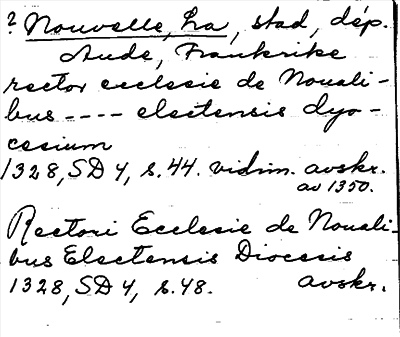 ? Nouvelle, La, stad, dép.
Aude, Frankrike
rector ecclesie de Nouali-
bus ---- electensis dyo-
cesium
1328, SD 4, s. 44. vidim. avskr.
av 1350.
Rectori Ecclesie de Nouali-
bus Electensis Diocesis
1328, SD 4, s. 48. avskr.